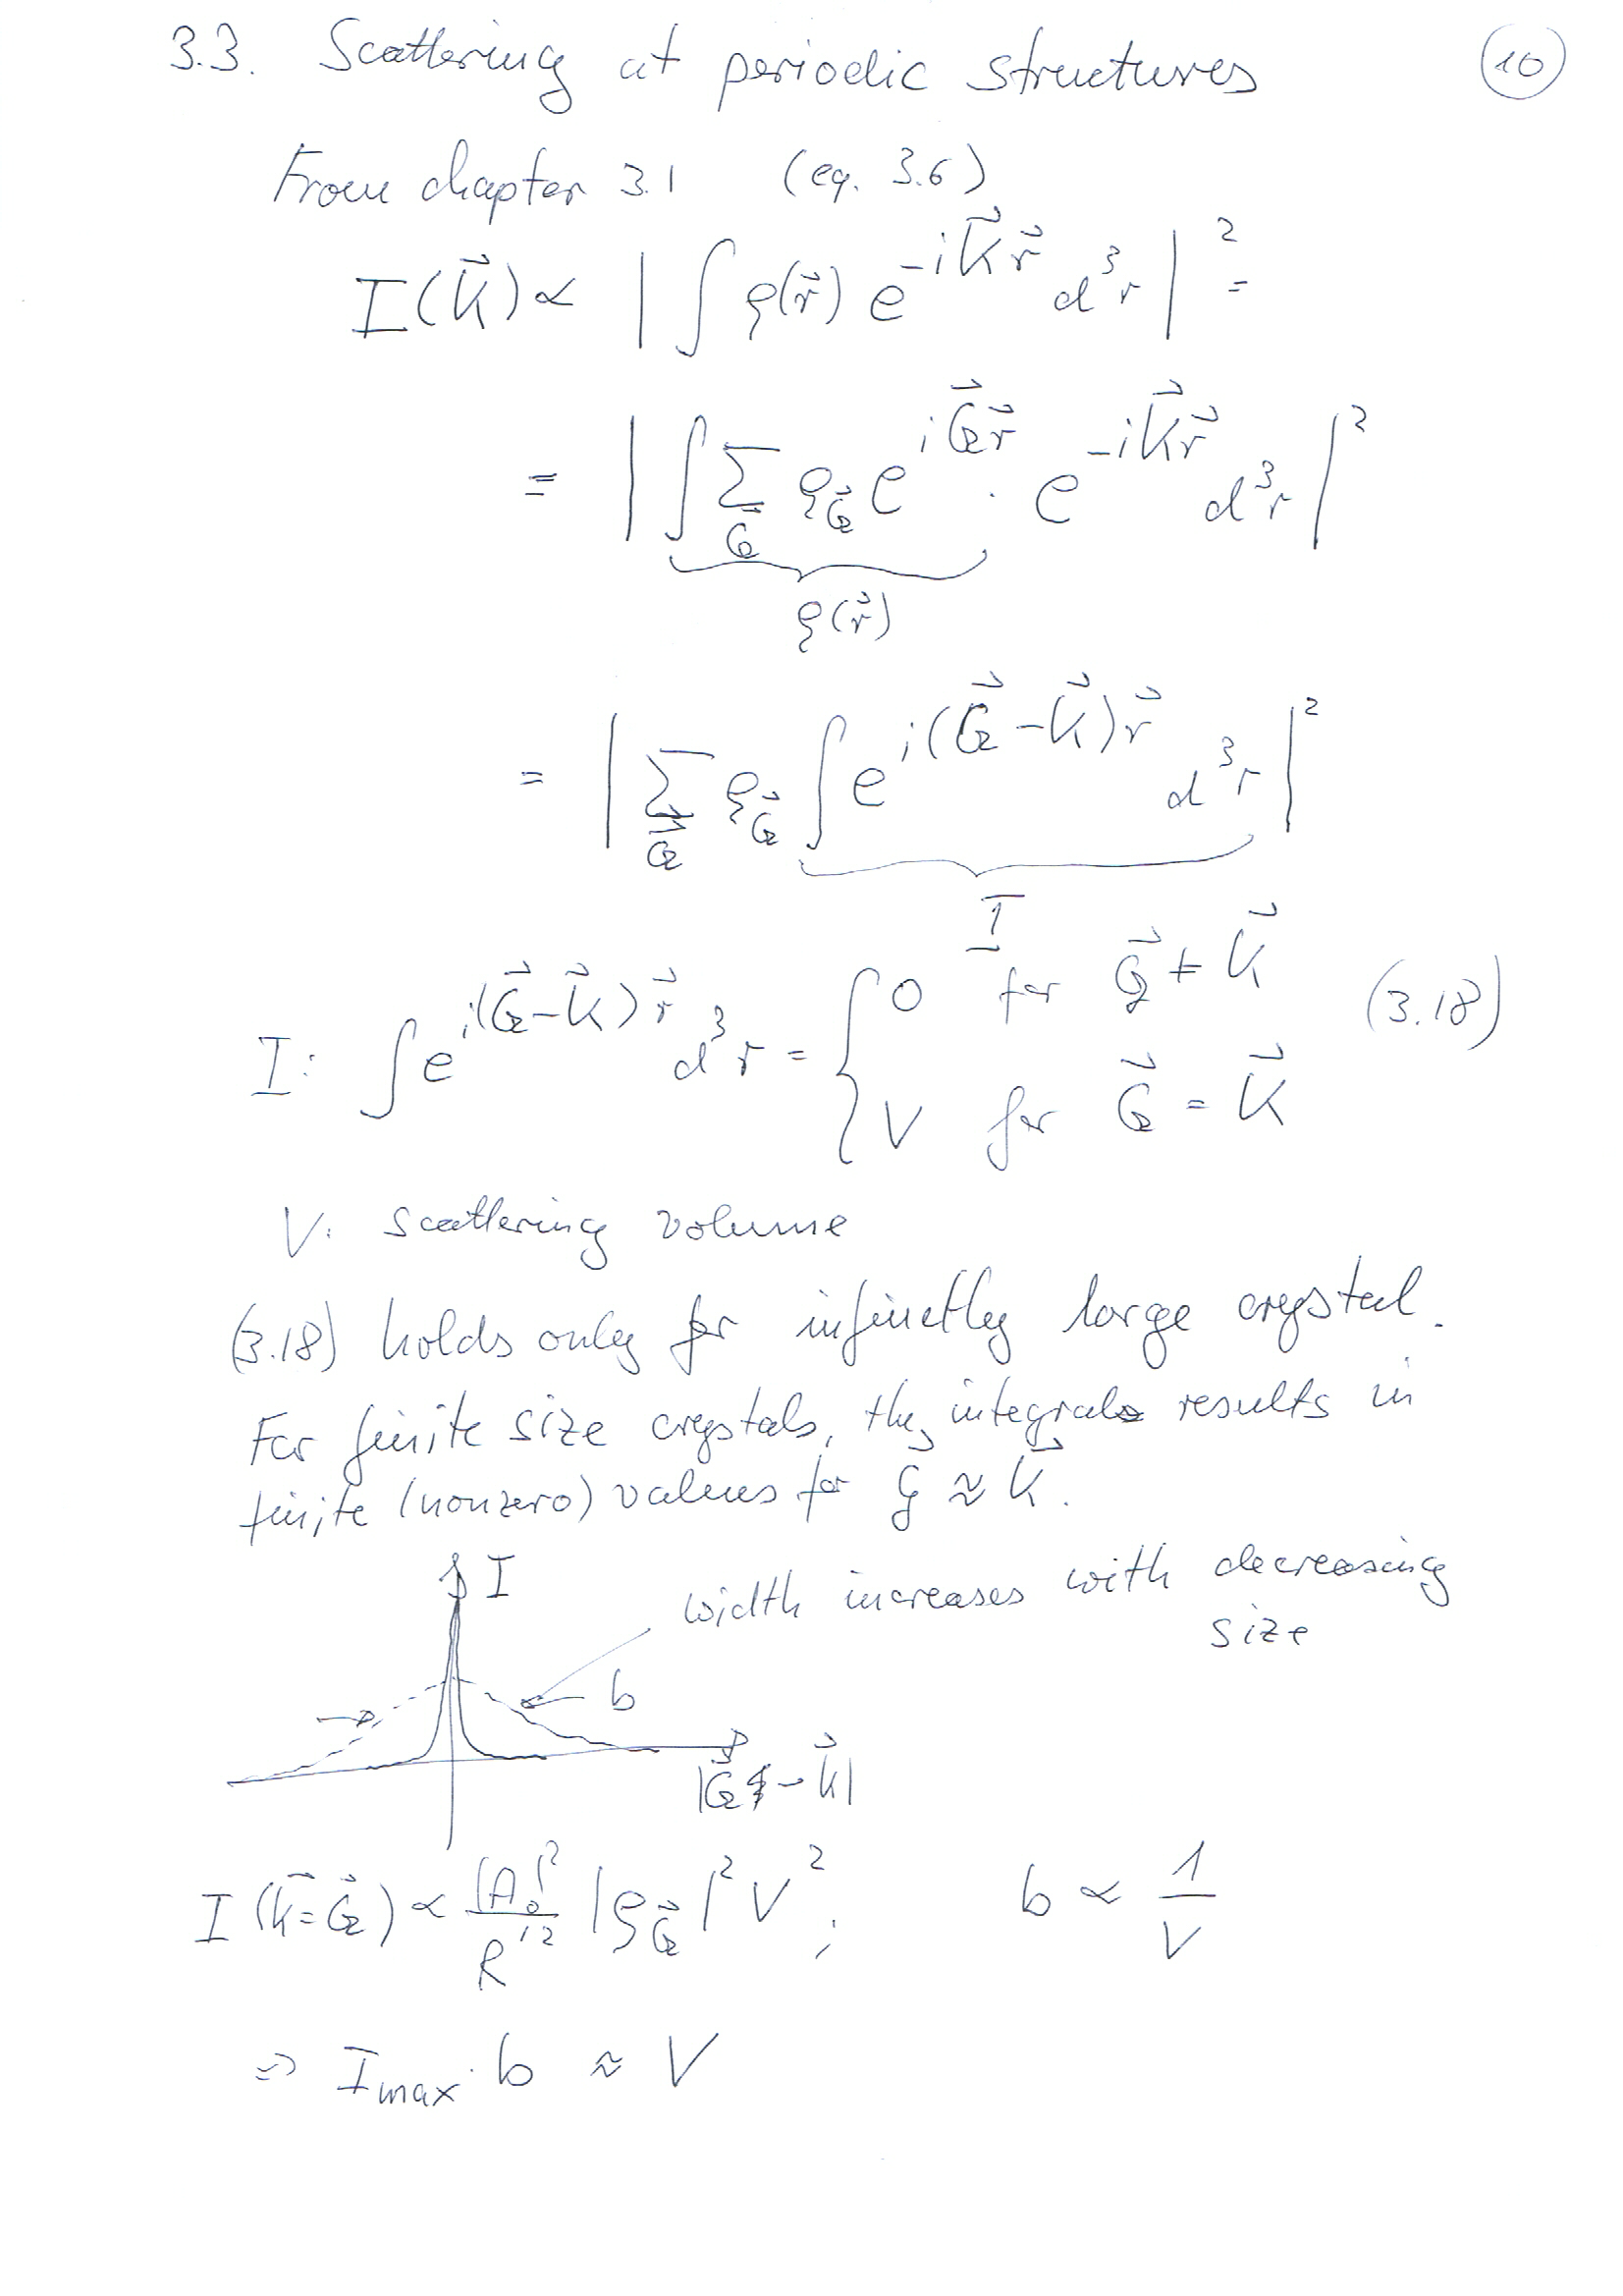 3.3. Scattering at periodic structures (10)
From chapter 3.1 (eq. 3.6)
I(K⃗) ∝ | ∫ ρ(r⃗) e^{-iK⃗r⃗} d³r |² =
= | ∫ Σ_{G⃗} ρ_{G⃗} e^{iG⃗r⃗} · e^{-iK⃗r⃗} d³r |²
ρ(r⃗)
= | Σ_{G⃗} ρ_{G⃗} ∫ e^{i(G⃗-K⃗)r⃗} d³r |²
I
I: ∫ e^{i(G⃗-K⃗)r⃗} d³r = { 0 for G⃗ ≠ K⃗ (3.18)
V for G⃗ = K⃗
V: scattering volume
(3.18) holds only for infinetly large crystal.
For finite size crystals, the integral results in
finite (nonzero) values for G⃗ ≈ K⃗.
I width increases with decreasing
size
b
|G⃗ - K⃗|
I (K⃗=G⃗) ∝ |A₀|²/R'² |ρ_{G⃗}|² V²; b ∝ 1/V
⇒ I_{max} · b ≈ V